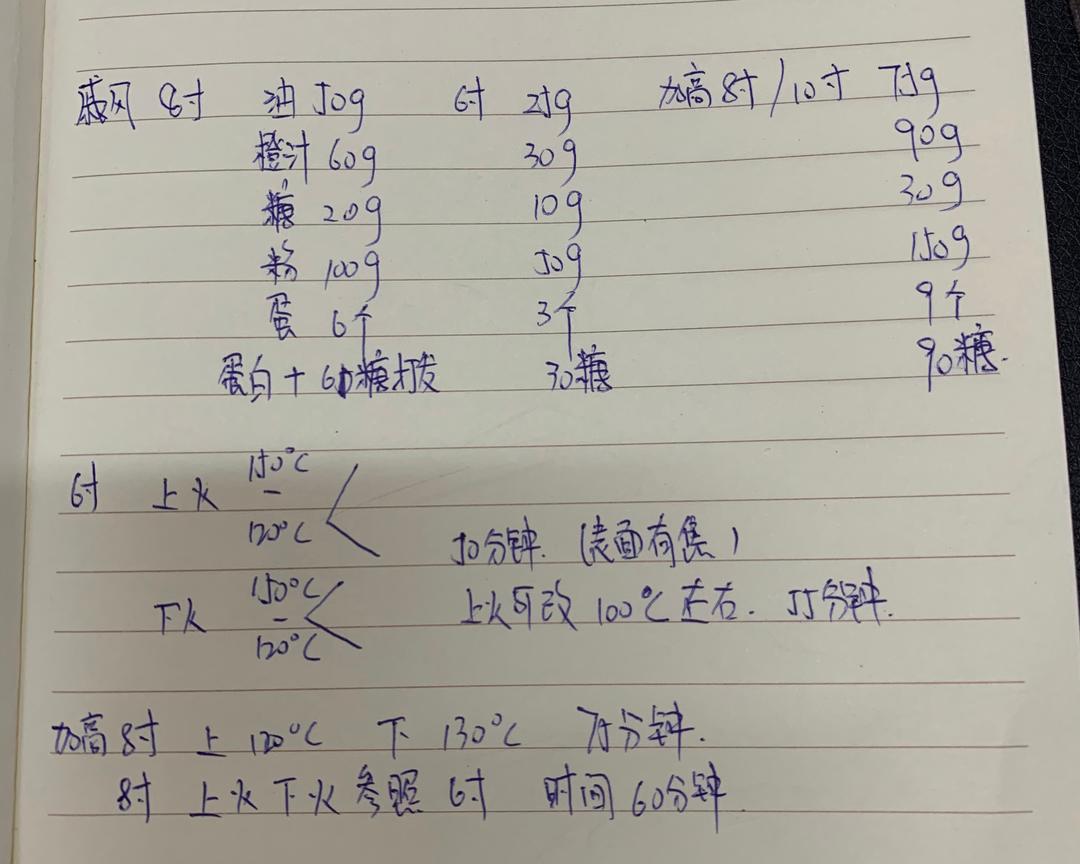 戚风 8寸 油 50g 6寸 25g 加高8寸/10寸 75g
橙汁 60g 30g 90g
糖 20g 10g 30g
粉 100g 50g 150g
蛋 6个 3个 9个
蛋白+60糖打发 30糖 90糖.
6寸 上火 150℃ - 120℃
50分钟.(表面有焦)
下火 150℃ - 120℃
上火可改 100℃左右. 55分钟.
加高8寸 上 120℃ 下 130℃ 75分钟.
8寸 上火下火参照 6寸 时间 60分钟